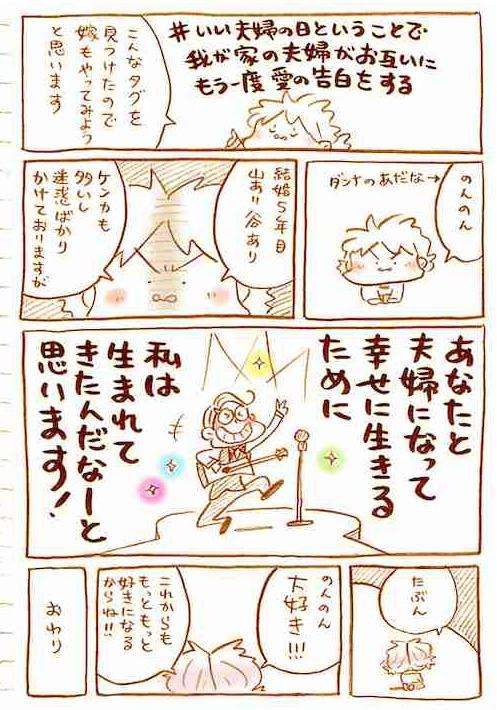 #いい夫婦の日ということで
我が家の夫婦がお互いに
もう一度愛の告白をする
こんなタグを
見つけたので
嫁もやってみよう
と思います
のんのん
ダンナのあだな→
結婚5年目
山あり谷あり
ケンカも
多いし
迷惑ばかり
かけておりますが
あなたと
夫婦になって
幸せに生きる
ために
私は
生まれて
きたんだなーと
思います!
たぶん
のんのん
大好き!!!
これからも
もっともっと
好きになる
からね!!
おわり